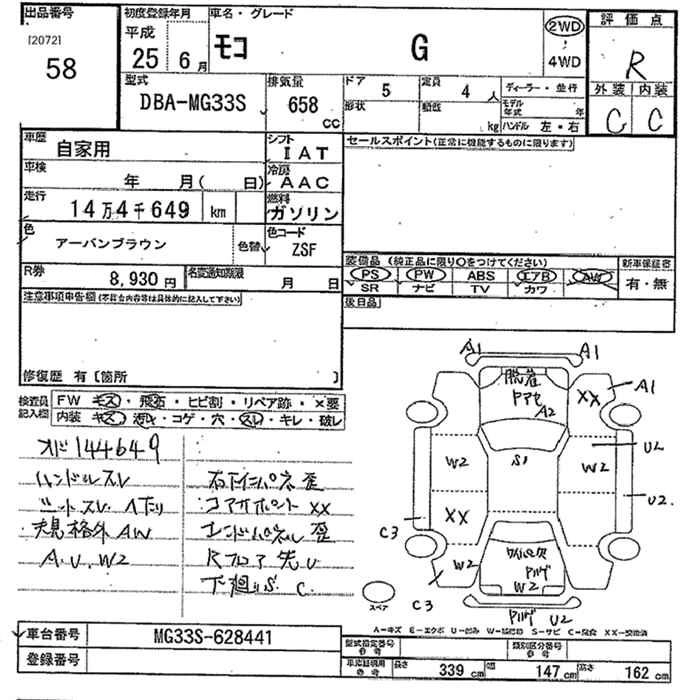 出品番号
[2072]
58
初度登録年月
平成
25 6月
車名・グレード
モコ G
2WD
4WD
評価点
R
外装 内装
C C
型式
DBA-MG33S
排気量
658 CC
ドア 5
形状
定員 4人
積載 kg
ディーラー・並行
モデル年式 年
ハンドル 左・右
車歴
自家用
シフト
IAT
セールスポイント(正常に機能するものに限ります)
車検
年 月( 日)
冷房
AAC
走行
14万4千649 km
燃料
ガソリン
色
アーバンブラウン
色替
色コード
ZSF
装備品 (純正品に限り○をつけてください)
PS PW ABS エアB AW
SR ナビ TV カワ
新車保証書
有・無
R券
8,930円
名変通知期限
月 日
後日品
注意事項申告欄(不具合内容等は具体的に記入して下さい)
修復歴 有 [箇所 ]
検査員記入欄
FW キズ・飛石・ヒビ割・リペア跡・×要
内装 キズ・汚れ・コゲ・穴・スレ・キレ・破レ
オド144649
ハンドルスレ
シートスレ ヘタリ
規格外AW
A.U.W2
右インパネ歪
コアサポート XX
エンドパネル歪
Rフロア先U
下廻りS C.
A1 A1
A1
脱着
A2
XX
S1
W2
W2
U2
U2
XX
C3
W2
C3
W2
U2
スペア
A-キズ E-エクボ U-凹み W-補修跡 S-サビ C-腐食 XX-交換済
車台番号
MG33S-628441
登録番号
型式指定番号
類別区分番号
長さ 339 cm 幅 147 cm 高さ 162 cm